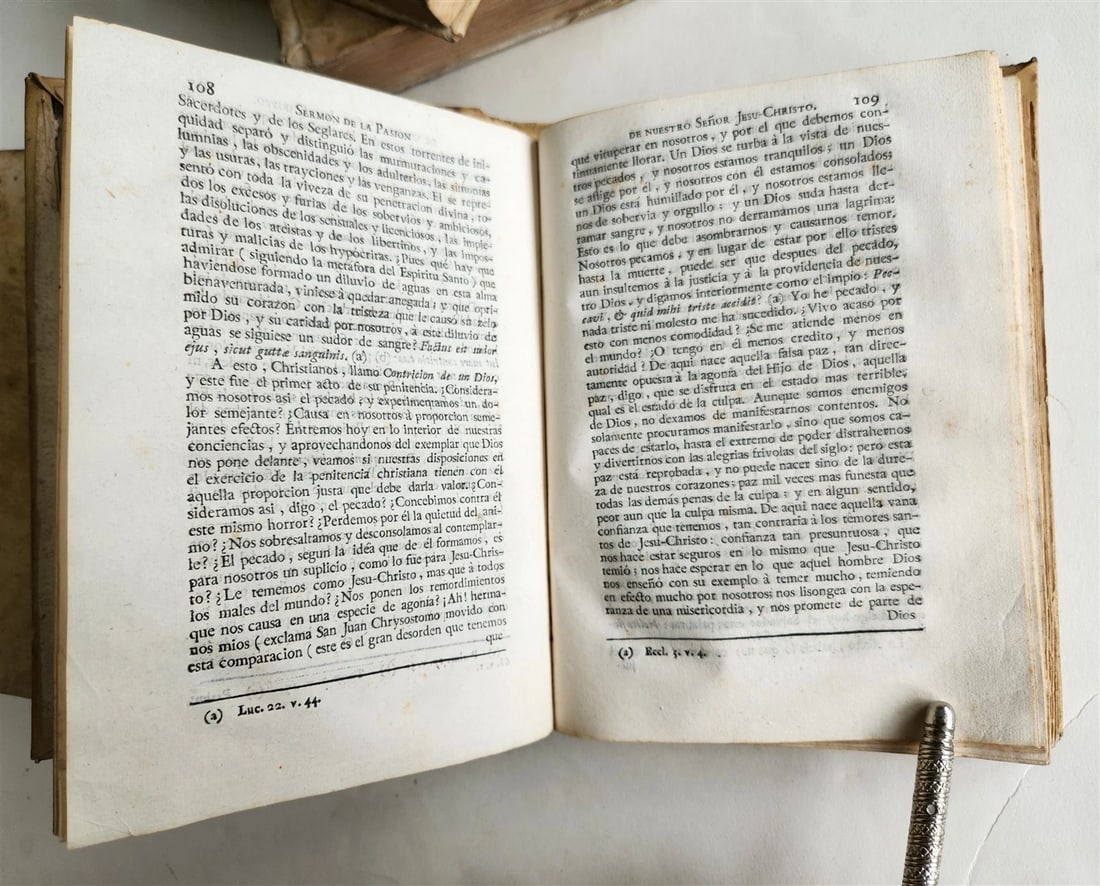 108
SERMON DE LA PASION
Sacerdotes y de los Seglares. En estos torrentes de ini-
quidad separó y distinguió las murmuraciones y ca-
lumnias, las obscenidades y los adulterios, las simonias
y las usuras, las trayciones y las venganzas. El se repre-
sentó con toda la viveza de su penetracion divina, to-
dos los excesos y furias de los sobervios y ambiciosos,
las disoluciones de los sensuales y licenciosos, las impie-
dades de los atéistas y de los libertinos, y las impos-
turas y malicias de los hypócritas. ¿Pues qué hay que
admirar (siguiendo la metáfora del Espiritu Santo) que
haviendose formado un diluvio de aguas en esta alma
bienaventurada, viniese à quedar anegada; y que opri-
mido su corazon con la tristeza que le causó su zelo
por Dios, y su caridad por nosotros, à este diluvio de
aguas se siguiese un sudor de sangre? Factus est sudor
ejus, sicut guttæ sanguinis. (a)
A esto, Christianos, llamo Contricion de un Dios,
y este fue el primer acto de su penitencia. ¿Considera-
mos nosotros asi el pecado, y experimentamos un do-
lor semejante? ¿Causa en nosotros à proporcion seme-
jantes efectos? Entremos hoy en lo interior de nuestras
conciencias, y aprovechandonos del exemplar que Dios
nos pone delante, veamos si nuestras disposiciones en
el exercicio de la penitencia christiana tienen con él
aquella proporcion justa que debe darla valor. ¿Con-
sideramos asi, digo, el pecado? ¿Concebimos contra él
este mismo horror? ¿Perdemos por él la quietud del ani-
mo? ¿Nos sobresaltamos y desconsolamos al contemplar-
le? ¿El pecado, segun la idéa que de él formamos, es
para nosotros un suplicio, como lo fue para Jesu-Chris-
to? ¿Le tememos como Jesu-Christo, mas que à todos
los males del mundo? ¿Nos ponen los remordimientos
que nos causa en una especie de agonía? ¡Ah! herma-
nos mios (exclama San Juan Chrysostomo movido con
esta comparacion (este es el gran desorden que tenemos
que
(a) Luc. 22. v. 44.
DE NUESTRO SEÑOR JESU-CHRISTO. 109
que vituperar en nosotros, y por el que debemos con-
tinuamente llorar. Un Dios se turba à la vista de nues-
tros pecados, y nosotros estamos tranquilos; un Dios
se aflige por él, y nosotros con él estamos consolados;
un Dios está humillado por él, y nosotros estamos lle-
nos de sobervia y orgullo: y un Dios suda hasta der-
ramar sangre, y nosotros no derramamos una lagrima:
Esto es lo que debe asombrarnos y causarnos temor.
Nosotros pecamos, y en lugar de estar por ello tristes
hasta la muerte, puede ser que despues del pecado,
aun insultemos à la justicia y à la providencia de nues-
tro Dios, y digamos interiormente como el impio: Pec-
cavi, & quid mihi triste accidit? (a) Yo he pecado, y
nada triste ni molesto me ha sucedido. ¿Vivo acaso por
esto con menos comodidad? ¿Se me atiende menos en
el mundo? ¿O tengo en él menos crédito, y menos
autoridad? De aqui nace aquella falsa paz, tan direc-
tamente opuesta à la agonía del Hijo de Dios, aquella
paz, digo, que se disfruta en el estado mas terrible,
qual es el estado de la culpa. Aunque somos enemigos
de Dios, no dexamos de manifestarnos contentos. No
solamente procuramos manifestarlo, sino que somos ca-
paces de estarlo, hasta el extremo de poder distrahernos
y divertirnos con las alegrias frivolas del siglo: pero esta
paz está reprobada, y no puede nacer sino de la dure-
za de nuestros corazones; paz mil veces mas funesta que
todas las demás penas de la culpa: y en algun sentido,
peor aun que la culpa misma. De aqui nace aquella vana
confianza que tenemos, tan contraria à los temores san-
tos de Jesu-Christo: confianza tan presuntuosa, que
nos hace estar seguros en lo mismo que Jesu-Christo
temió; nos hace esperar en lo que aquel hombre Dios
nos enseñó con su exemplo à temer mucho, temiendo
en efecto mucho por nosotros; nos lisongea con la espe-
ranza de una misericordia, y nos promete de parte de
Dios
(a) Eccl. 5. v. 4.